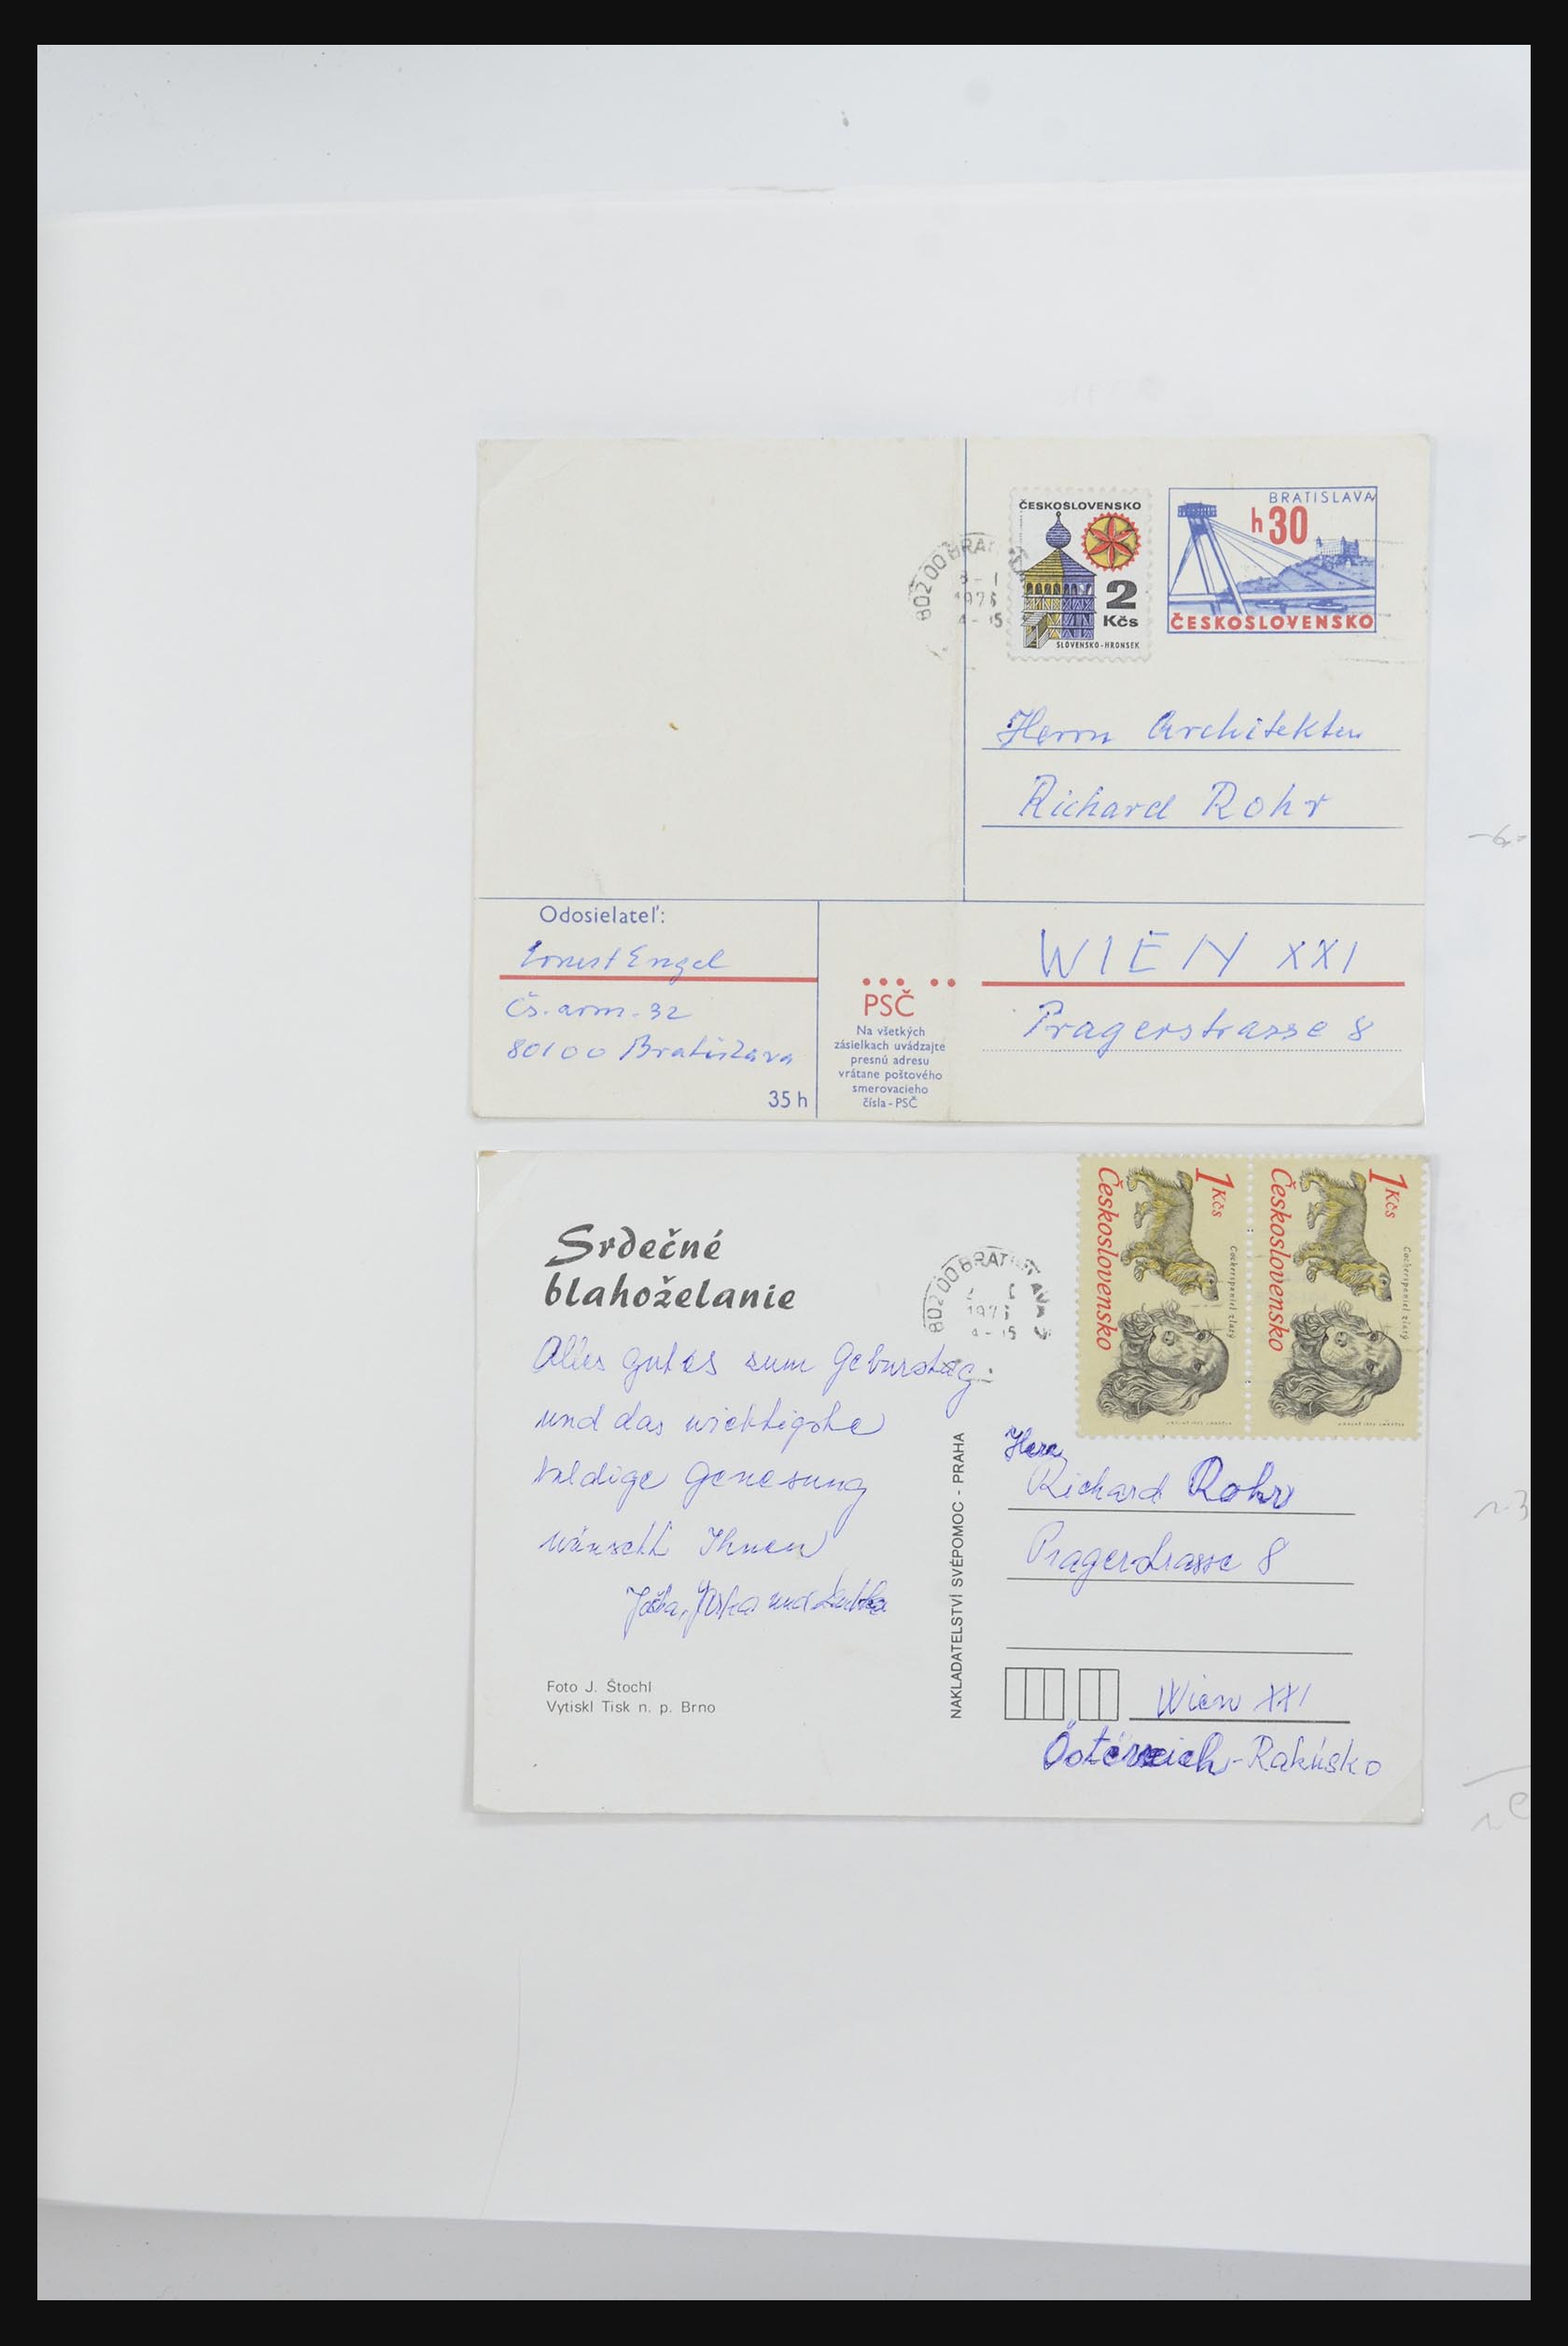 ČESKOSLOVENSKO
2
Kčs
SLOVENSKO-HRONSEK
BRATISLAVA
h 30
ČESKOSLOVENSKO
802 00 BRA
1976
Herrn Architekten
Richard Rohr
Odosielateľ:
Ernest Engel
Čs. arm. 32
80100 Bratislava
35 h
PSČ
Na všetkých
zásielkach uvádzajte
presnú adresu
vrátane poštového
smerovacieho
čísla - PSČ
WIEN XXI
Pragerstrasse 8
Srdečné
blahoželanie
Alles gutes zum Geburstag
und das wichtigste
baldige Genesung
wünscht Ihnen
und
Foto J. Štochl
Vytiskl Tisk n. p. Brno
NAKLADATELSTVÍ SVÉPOMOC - PRAHA
802 00 BRATISLAVA
1 Kčs
Československo
Cockerspaniel zlatý
1 Kčs
Československo
Cockerspaniel zlatý
Herrn
Richard Rohr
Pragerstrasse 8
Wien XXI
Österreich - Rakúsko